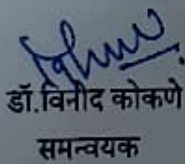 डॉ.विनोद कोकणे
समन्वयक